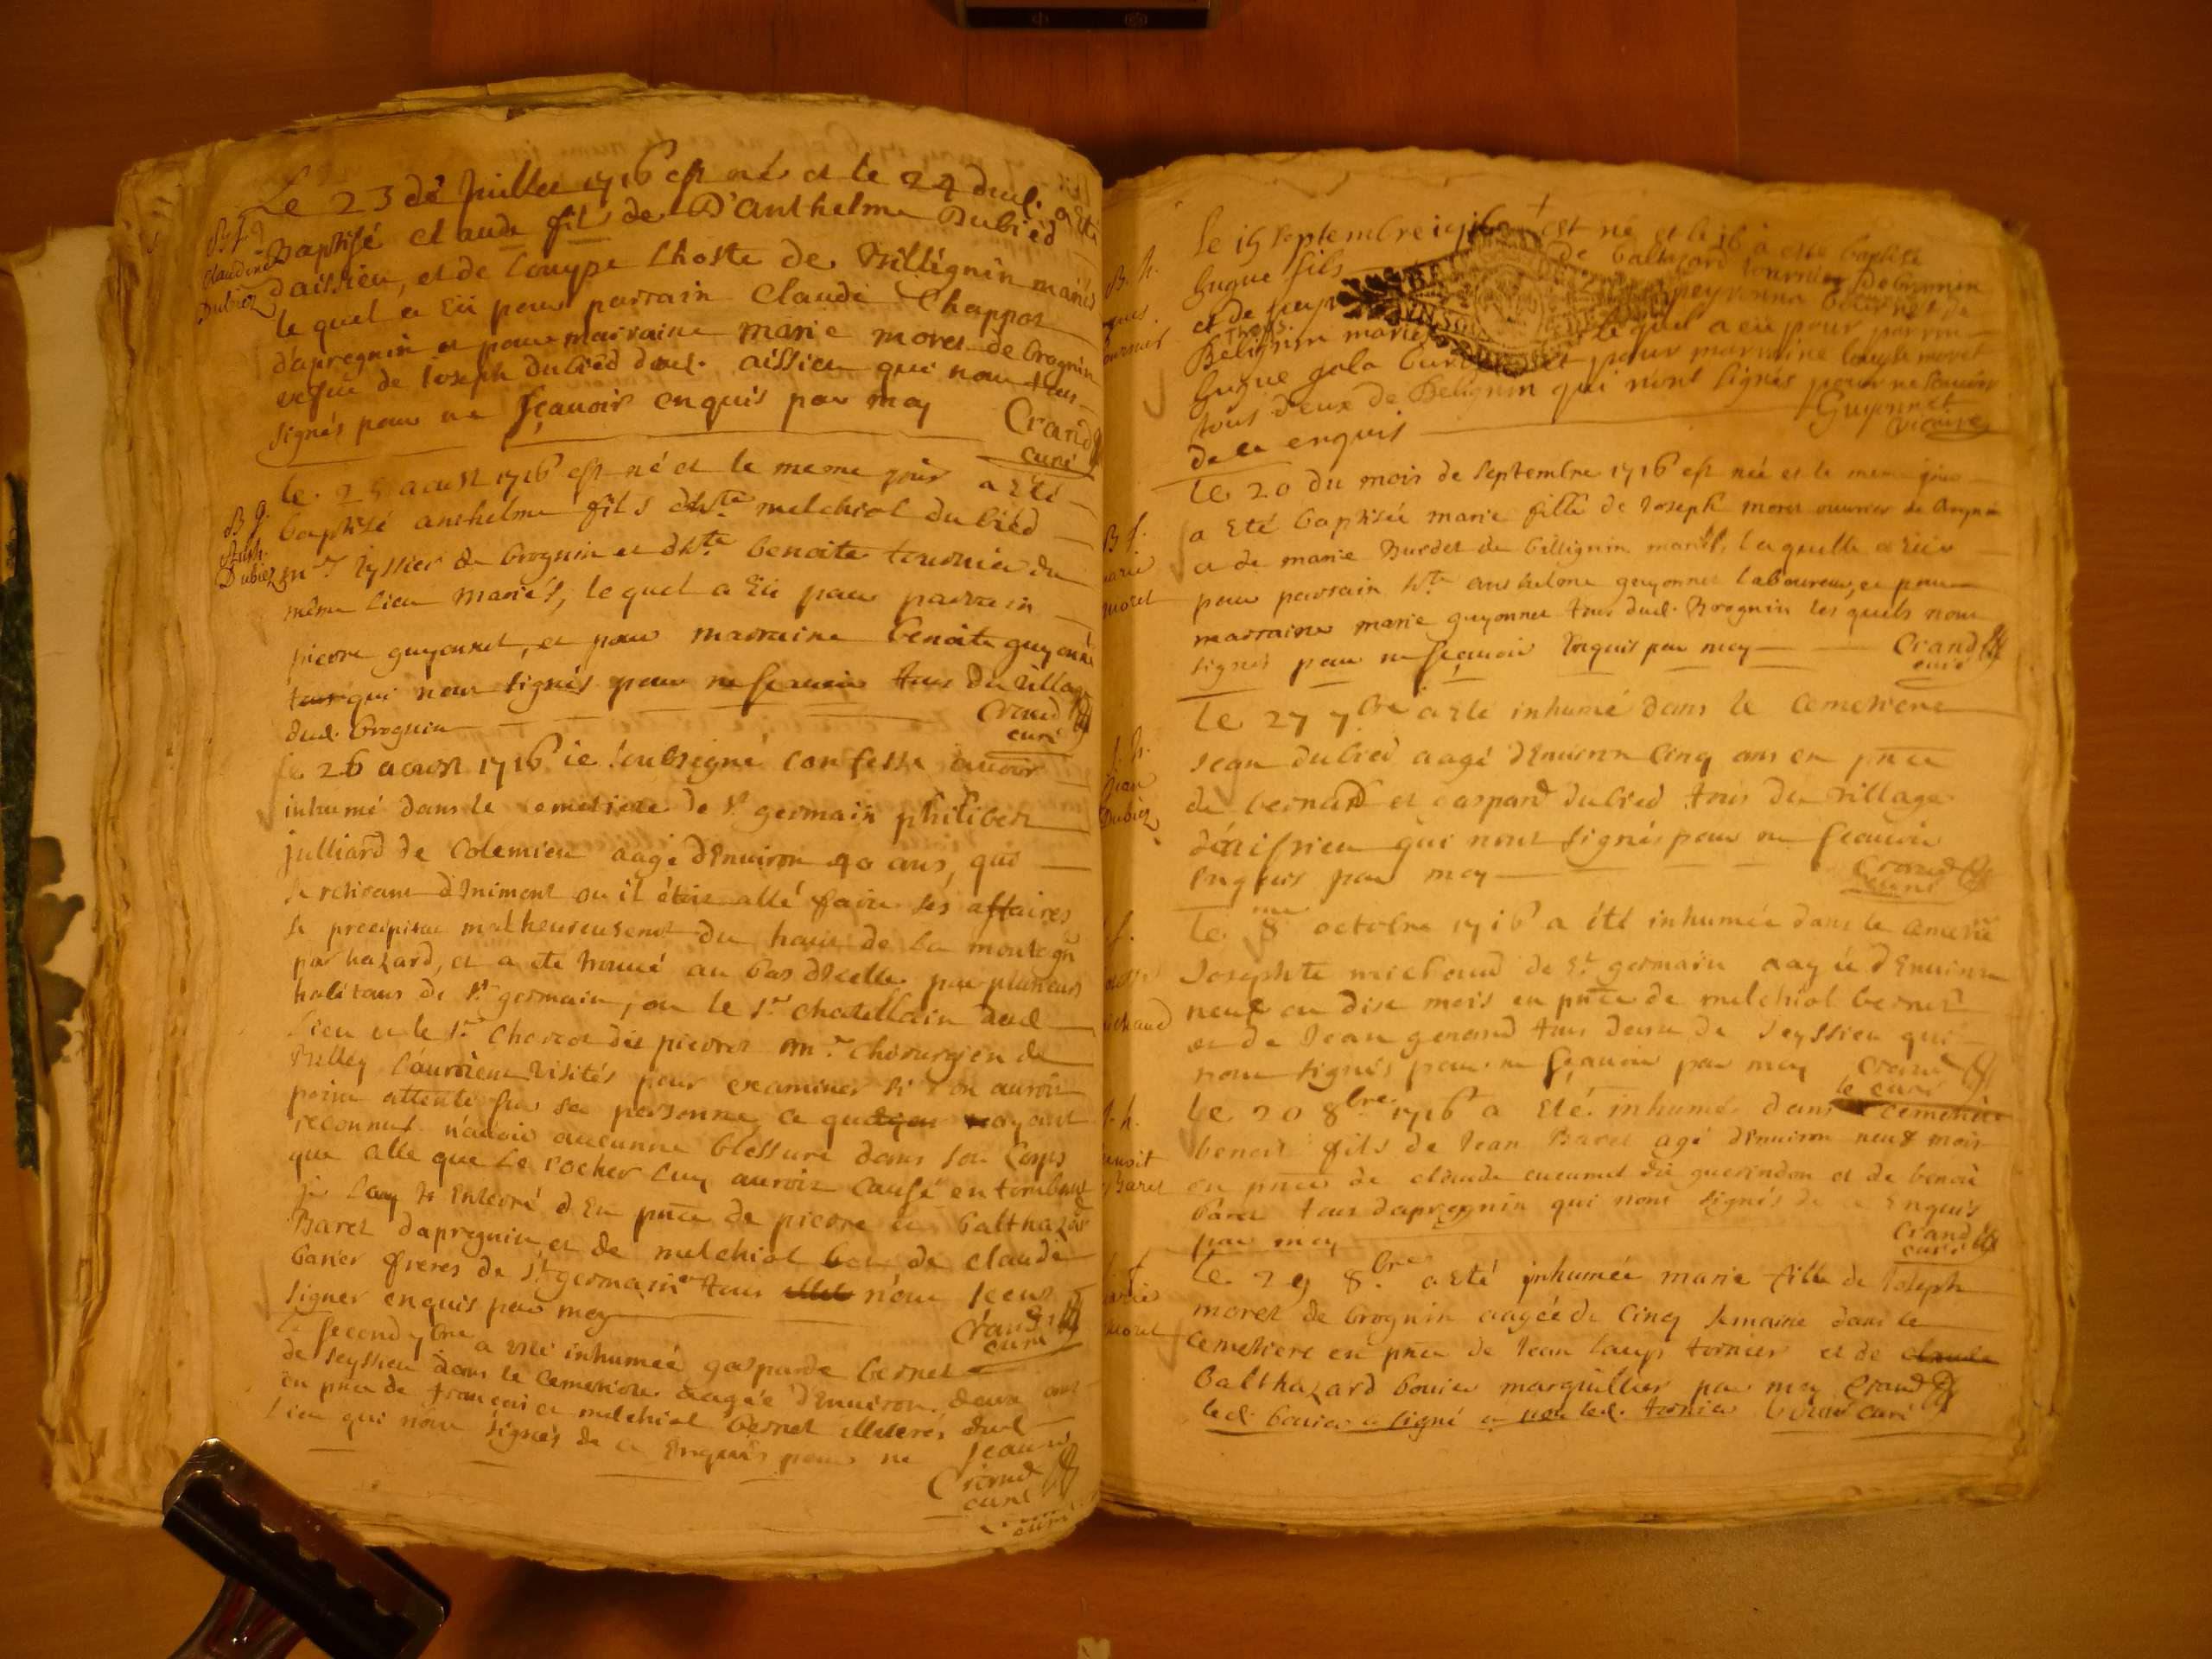 Le 23 de Juillet 1716 est né et le 24 dud. a Eté
B f g
Claudine
Dubiez
Baptisé claude fil de D'anthelme Dubied
daissieu, et de Louyse Lhoste de Villignin mariés
le quel a Eü pour parrain Claude Chappot
dapregnin et pour marraine marie moret de brognin
vefue de Joseph dubied dud. aissieu qui nont tous
signés pour ne sçauoir enquis par moy Crand
curé
le 25 aoust 1716 est né et le meme jour a Eté
B g.
Anth.
Dubiez
baptisé anthelme fils dh.te melchiol dubied
m.re tyssier de brognin et dh.te benoite tournier du
même lieu mariés, le quel a Eü pour parrain
pierre guyonnet, et pour marraine benoite guyonet
qui nont signés pour ne sçauoir tous du village
dud. brognin
Crand
curé
le 26 aoust 1716 ie soubsigné confesse auoir
inhumé dans le cemetiere de St germain philibert
julliard de Colemieu aagé dEnuiron 40 ans, qui
se retirant dInimont ou il étoit allé faire sés affaires
se precipita malheureusement du haut de la montagn
par hazard, et a ete trouué au bas dIcelle par plusieurs
habitans de St germain, ou le Sr chatellain dud
lieu et le Sr Charcot dit pierret m.re chirurgien de
Belley l'auroient visités pour examiner si l'on auroit
point attenté sur sa personne ce qu ayant
reconnus n'auoir aucunne blessure dans son Corps
que celle que le rocher luy auroit causé en tombant
je l'ay Enterré En pnce de pierre et balthazar
Baret dapregnin et de melchiol et de claude
bonier freres de St germain tous n'ont sceus
signer enquis par moy
Crand
curé
le second 7bre a eté inhumée gasparde bernet
de seyssieu dans le cemetiere aagée dEnuiron deux ans
en pnce de francois et melchiol bernet illiterés dud
lieu qui nont signés de ce Enquis pour ne sçauoir
Crand
curé
le 15 septembre 1716 est né et le 16 a esté baptisé
B. h.
hugue fils de baltazard tournier De brognin
et de peyronne bournet de
Belignin mariés le quel a eü pour parrin
hugue et pour marraine louyse moret
tous deux de Belignin qui nont signés pour ne sauoir
de ce enquis
Guyonnet
vicaire
le 20 du mois de septembre 1716 est née et le meme jour
B f.
marie
moret
a Eté baptisée marie fille de Joseph moret ouurier de brognin
et de marie Burdet de billignin mariés, laquelle a Eüe
pour parrain h.te anthelme guyonnet laboureur, et pour
marraine marie guyonnet tous dud. Brognin les quels nont
signés pour ne sçauoir Enquis par moy Crand
curé
le 27 7bre a eté inhumé dans le cemetiere
J. h.
Jean
Dubiez
Jean dubied aagé dEnuiron Cinq ans en pnce
de bernard et gaspard dubied tous du village
daissieu qui nont signés pour ne sçauoir
Enquis par moy
Crand
curé
le 8me octobre 1716 a été inhumée dans le cemetié
Josephte michaud de St germain aagée dEnuiron
neuf ou dise mois en pnce de melchiol bernet
et de Jean genand tous deux de seyssieu qui
nont signés pour ne sçauoir par moy Crand
le curé
Le 20 8bre 1716 a Eté inhumé dans cemetiere
benoit
Baret
benoit fils de Jean Baret agé dEnuiron neuf mois
en pnce de claude cucunet dit guerindon et de benoit
baret tous dapregnin qui nont signés de ce Enquis
par moy
Crand
curé
le 29 8bre a Eté inhumée marie fille de Joseph
marie
moret
moret de brognin aagée de Cinq semaine dans le
cemetiere en pnce de Jean Louys tornier et de claude
Balthazard bonier marguillier par moy Crand
led. bonier a signé et non led. tornier bonier curé